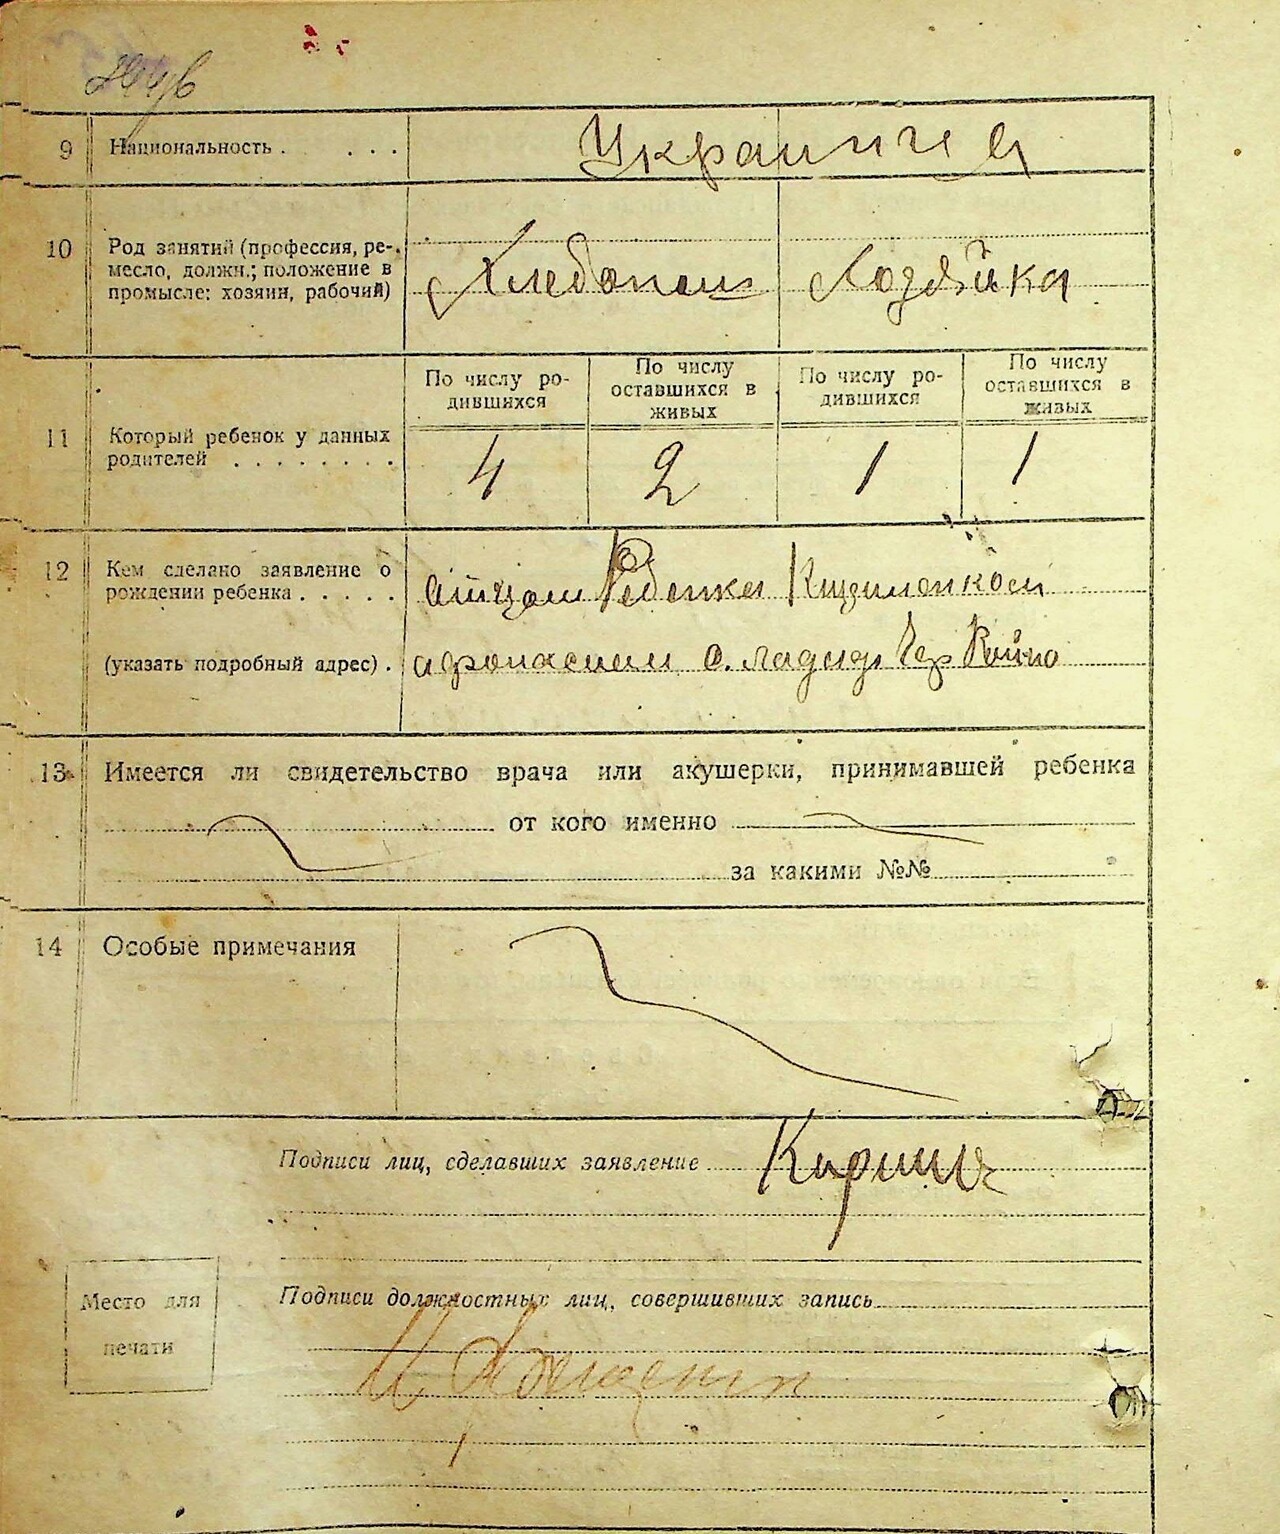 9 Национальность . . . . Украинця
10 Род занятий (профессия, ре-
месло, должн.; положение в
промысле: хозяин, рабочий)
Хлебопаш Хозяйка
По числу ро-
дившихся
По числу
оставшихся в
живых
По числу ро-
дившихся
По числу
оставшихся в
живых
11 Который ребенок у данных
родителей . . . . . . . .
4 2 1 1
12 Кем сделано заявление о
рождении ребенка . . . . .
отцом Ребенка
(указать подробный адрес) .
афонасием с.
13 Имеется ли свидетельство врача или акушерки, принимавшей ребенка
от кого именно
за какими №№
14 Особые примечания
Подписи лиц, сделавших заявление
Подписи должностных лиц, совершивших запись
Место для
печати